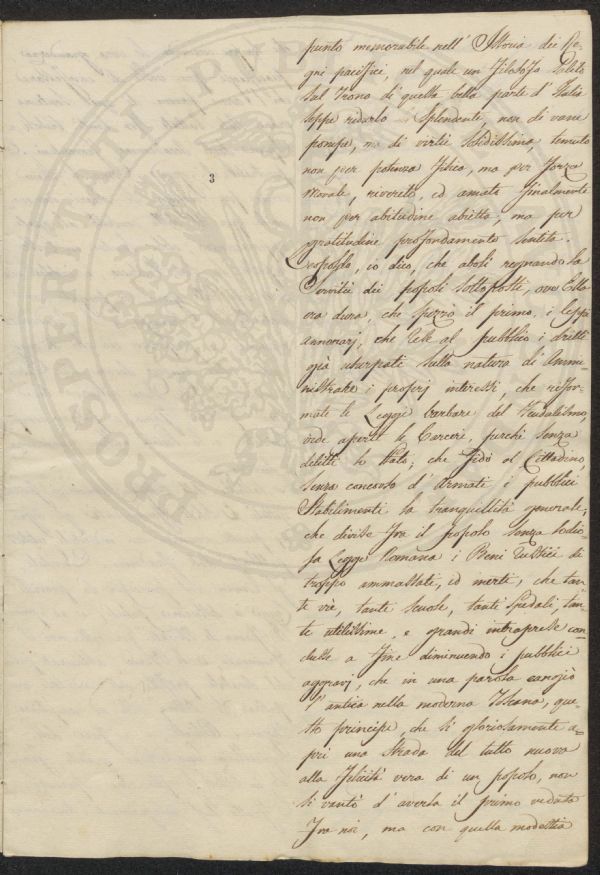 3
punto memorabile nell' Istoria dei Re-
gni pacifici, nel quale un Filosofo Salito
sul Trono di quella bella parte d' Italia
seppe renderlo Splendente, non di vane
pompe, ma di virtù solidissima, temuto
non per potenza fisica, ma per forza
Morale, riverito, ed amato finalmente
non per abitudine abietta, ma per
gratitudine profondamente sentita.
Leopoldo, io dico, che abolì regnando la
Servitù dei popoli sottoposti, ove Ella
era dura, che spezzò il primo, i ceppi
annonarj, che rese al pubblico i dritti
già usurpati sulla natura di Ammi-
nistrare i proprj interessi, che rifor-
mate le Legge barbare del Feudalismo,
vide aperte le Carceri, perchè senza
delitti lo Stato; che fidò al Cittadino,
senza concorso d' Armate i pubblici
Stabilimenti la tranquillità generale;
che divise fra il popolo senza l'odio-
sa Legge Romana i Beni rustici di
troppo ammassati, ed inerti; che tan-
te vie, tante scuole, tanti Spedali, tan-
te utilissime, e grandi intraprese con-
dusse a fine diminuendo i pubblici
aggravj, che in una parola cangiò
l'antica nella moderna Toscana, que-
sto principe, che sì gloriosamente a-
prì una strada del tutto nuova
alla felicità vera di un popolo, non
si vantò d' averla il primo veduta
fra noi, ma con quella modestia